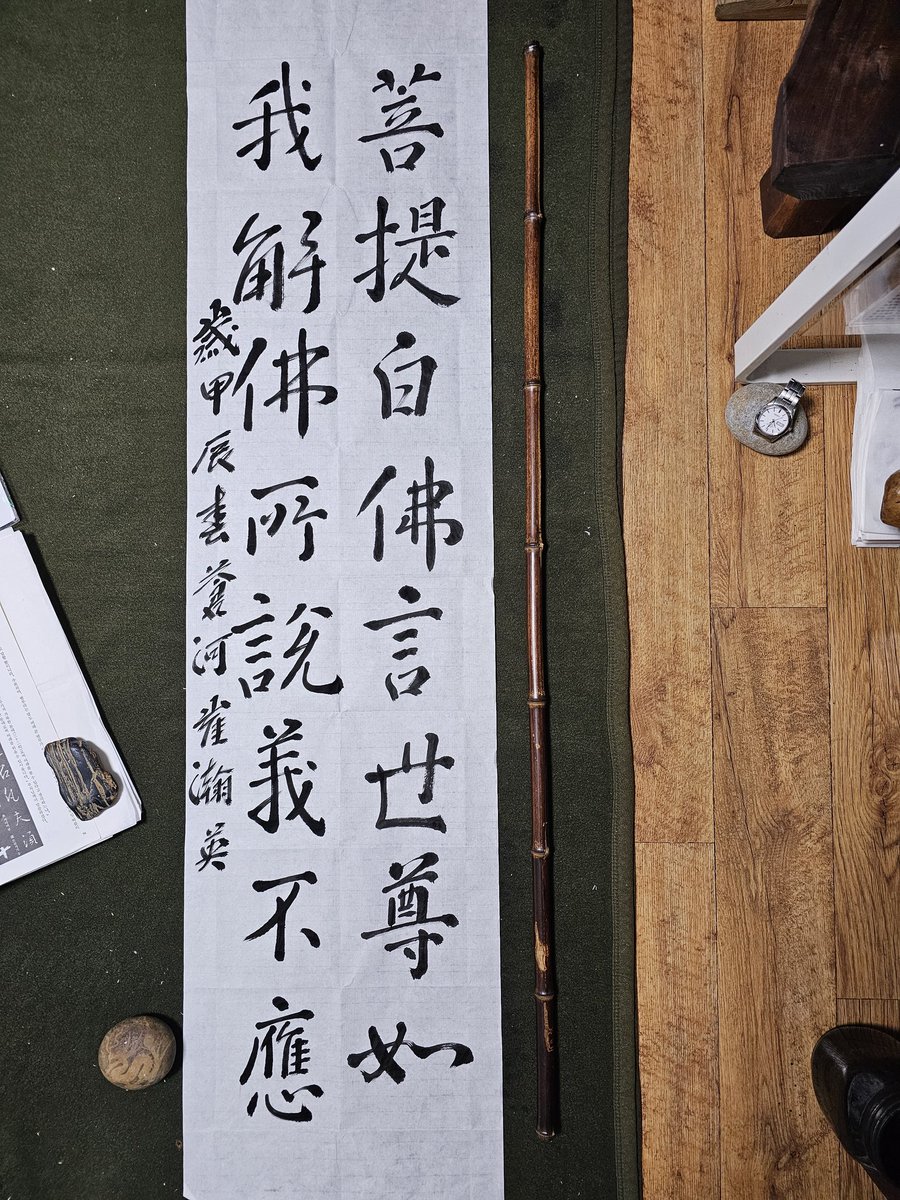 菩提白佛言世尊如
我解佛所說義不應
歲甲辰春蒼河崔瀚英